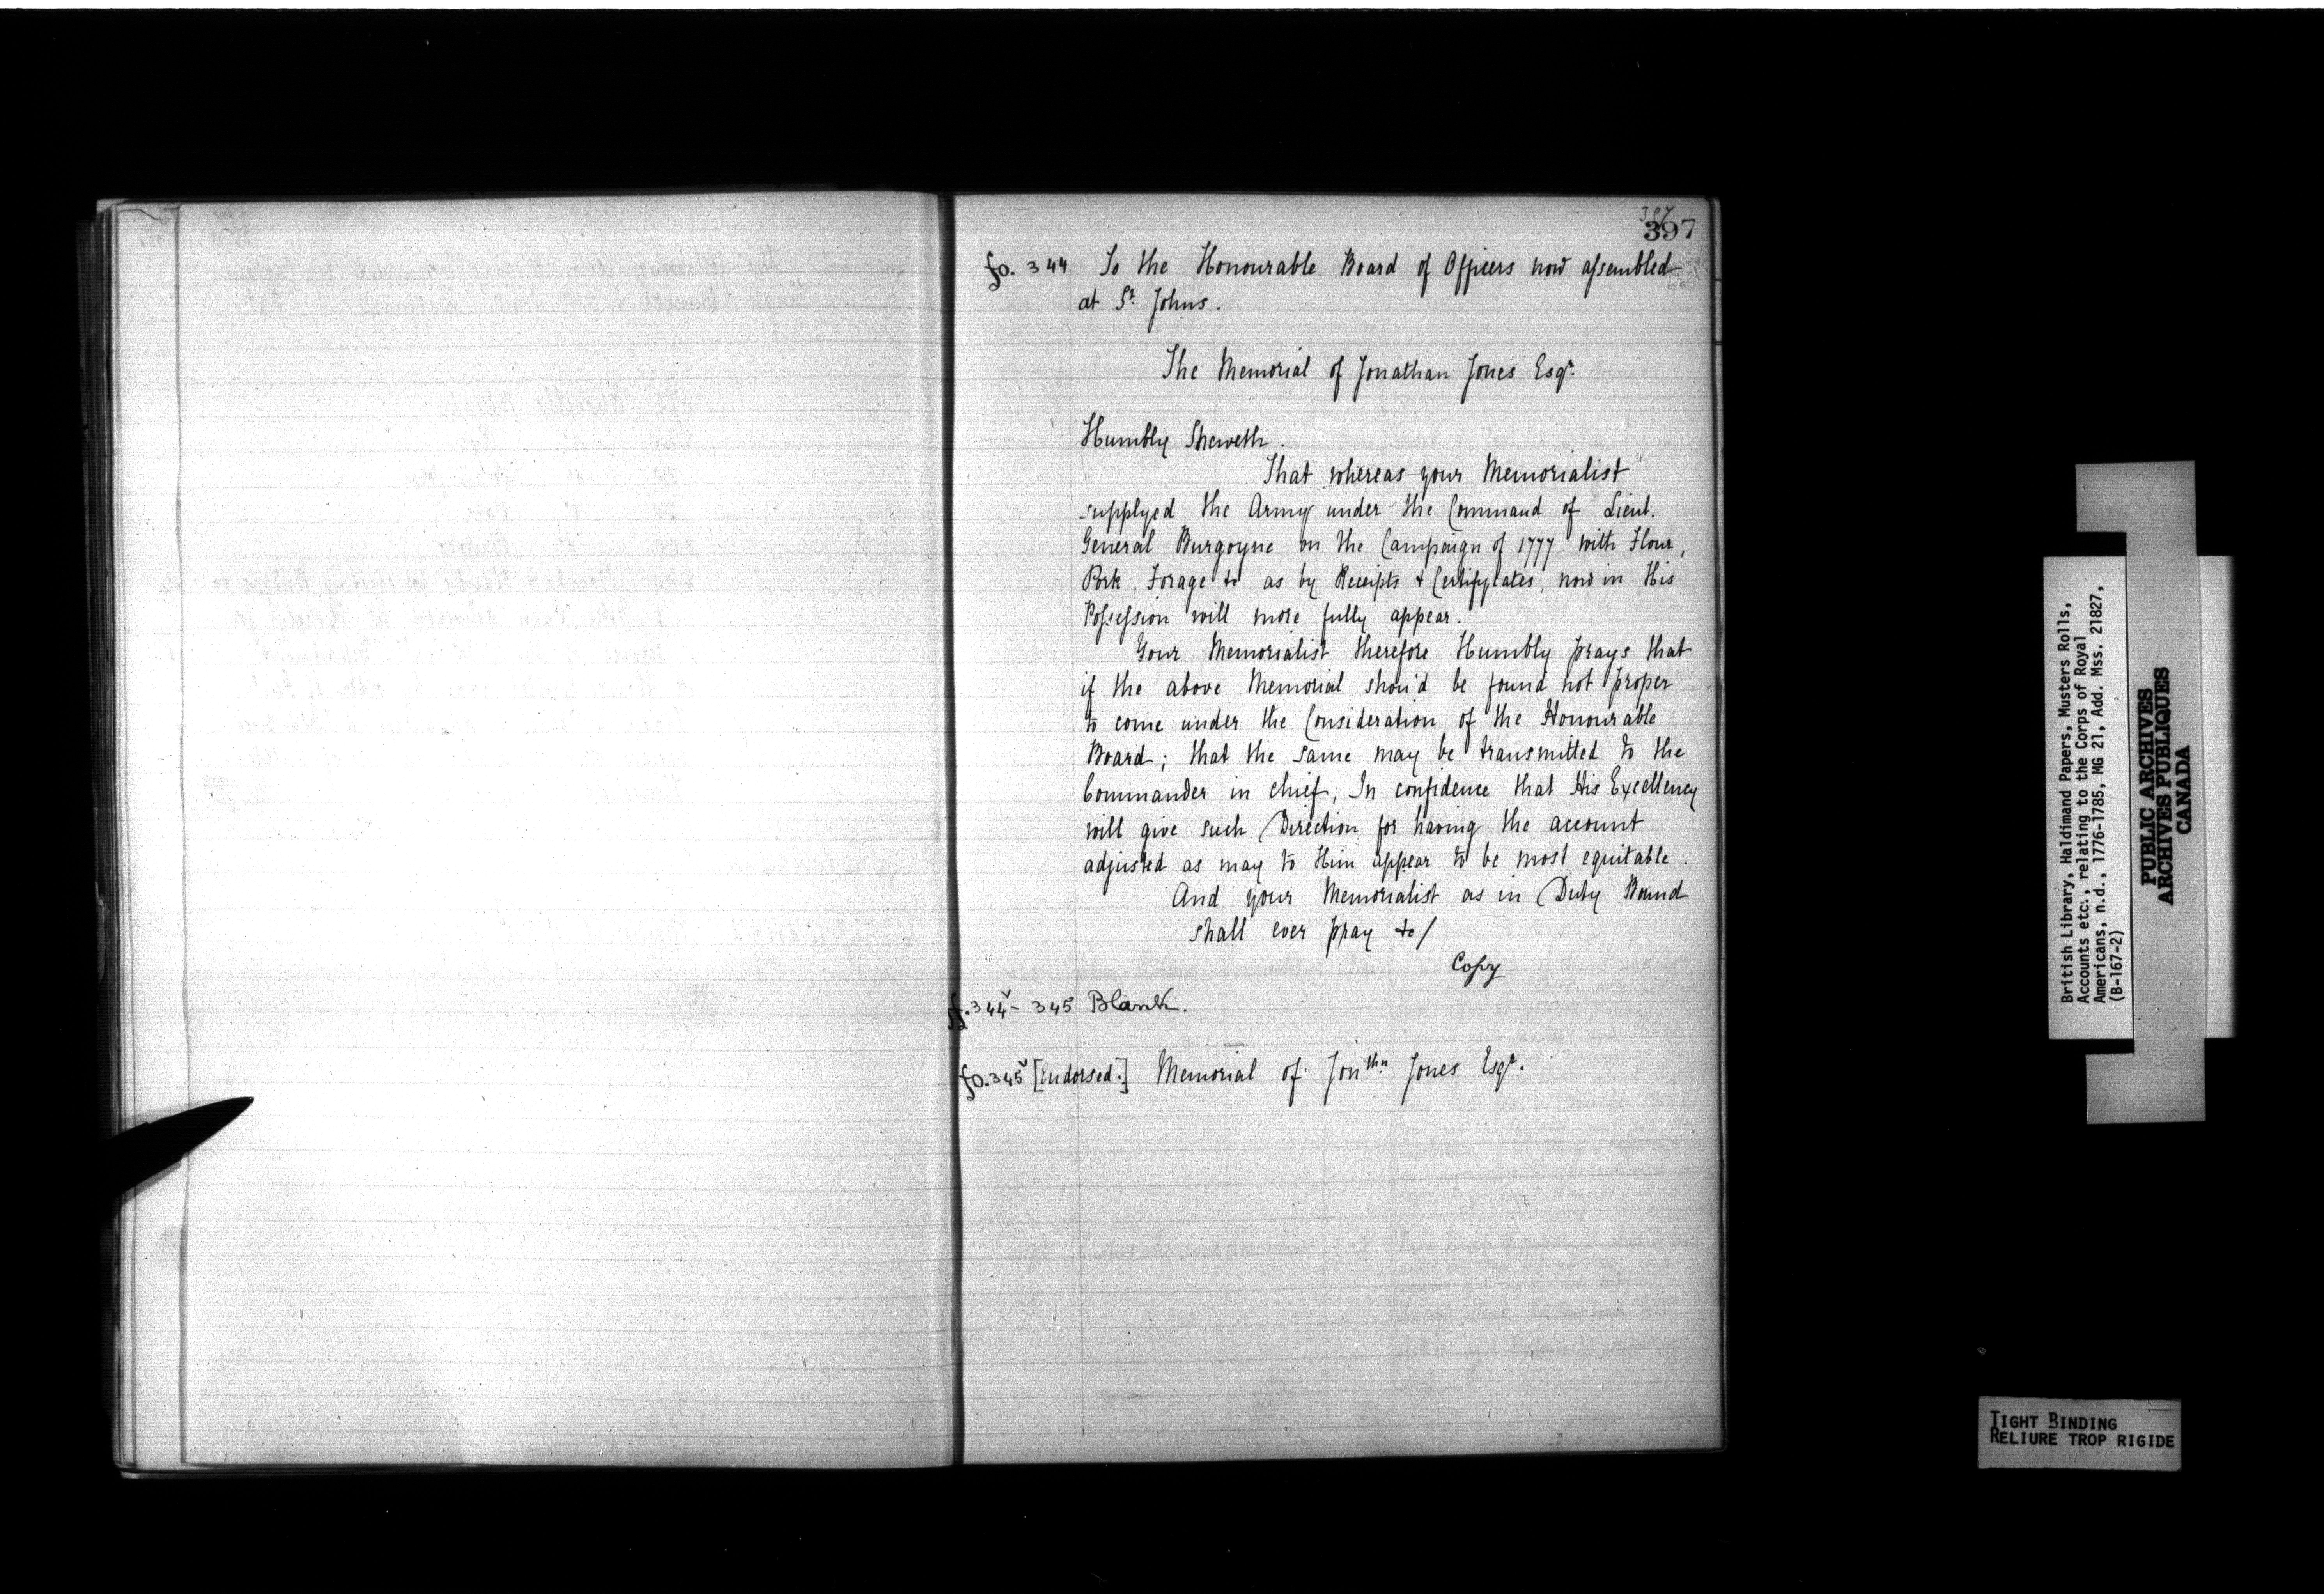 387
397
fo. 344 To the Honourable Board of Officers now assembled
at St. Johns.
The Memorial of Jonathan Jones Esqr.
Humbly Sheweth.
That whereas your Memorialist
supplyed the Army under the Command of Lieut.
General Burgoyne on the Campaign of 1777 with Flour,
Pork, Forage &c as by Receipts & Certifycates, now in His
Possession will more fully appear.
Your Memorialist therefore Humbly prays that
if the above Memorial shou'd be found not proper
to come under the Consideration of the Honourable
Board; that the same may be transmitted to the
Commander in chief, In confidence that His Excellency
will give such Direction for having the account
adjusted as may to Him appear to be most equitable.
And your Memorialist as in Duty Bound
shall ever pray &c/
Copy
ff. 344v - 345 Blank.
fo. 345v [Endorsed.] Memorial of Jonthn Jones Esqr.
British Library, Haldimand Papers, Musters Rolls,
Accounts etc., relating to the Corps of Royal
Americans, n.d., 1776-1785, MG 21, Add. Mss. 21827,
(B-167-2)
PUBLIC ARCHIVES
ARCHIVES PUBLIQUES
CANADA
TIGHT BINDING
RELIURE TROP RIGIDE